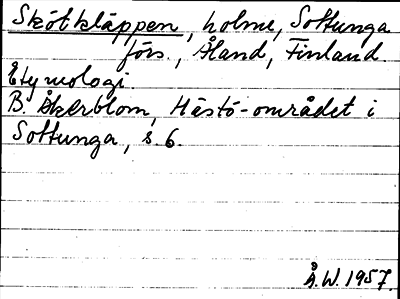 Skötkläppen, holme, Sottunga
förs., Åland, Finland.
Etymologi.
B. Åkerblom, Hästö-området i
Sottunga, s. 6.
Å.W. 1957.